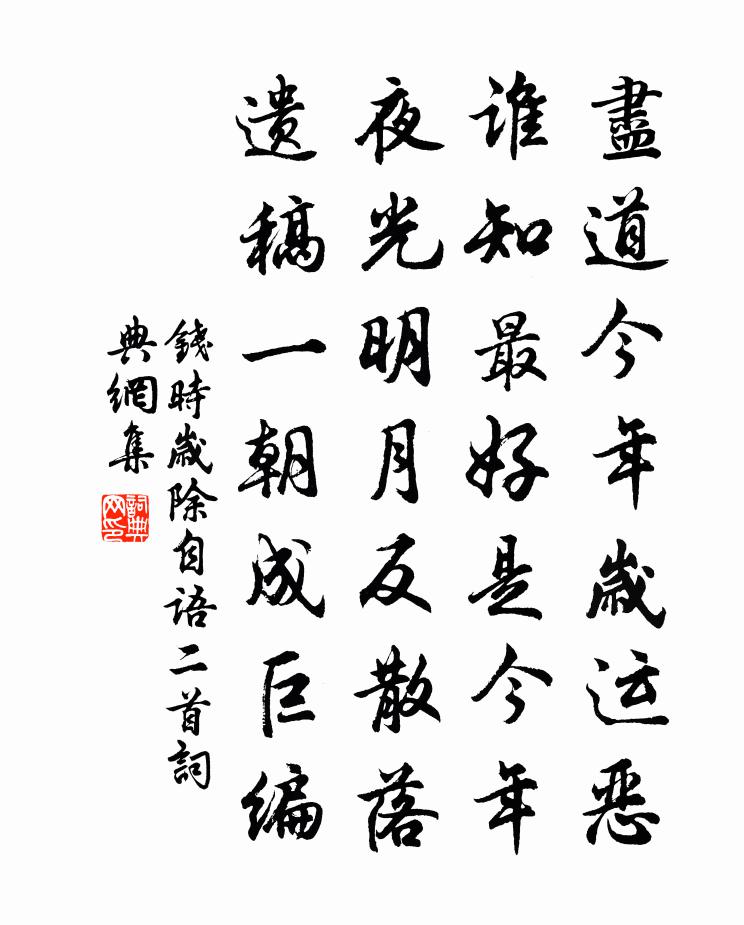 盡道今年歲运惡
谁知最好是今年
夜光明月反散落
遗稿一朝成巨编
錢時歲除自语二首詞
典網集
詞典
网印